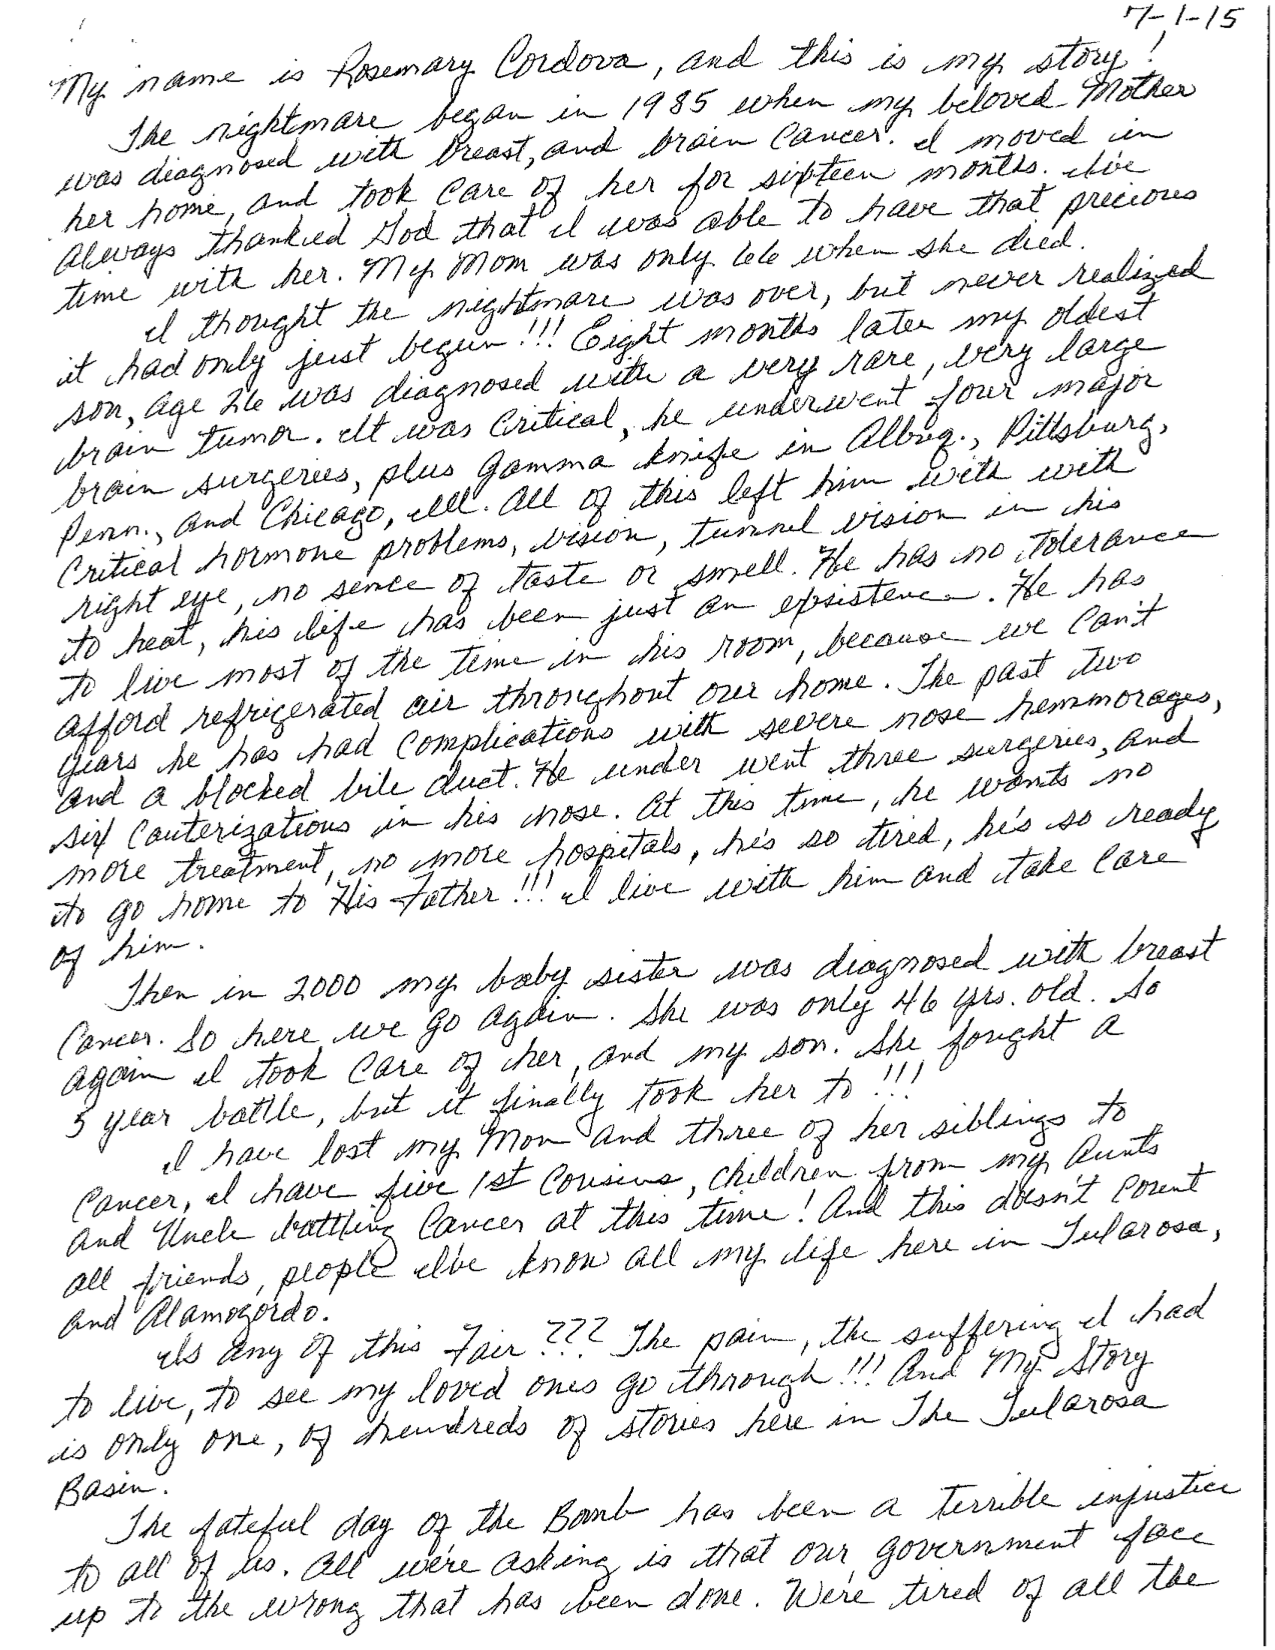 7-1-15
My name is Rosemary Cordova, and this is my story!
The nightmare began in 1985 when my beloved Mother
was diagnosed with breast, and brain Cancer. I moved in
her home, and took Care of her for sixteen months. I've
Always thanked God that I was able to have that precious
time with her. My Mom was only 66 when she died.
I thought the nightmare was over, but never realized
it had only just begun!!! Eight months later my oldest
son, age 26 was diagnosed with a very rare, very large
brain tumor. It was Critical, he underwent four major
brain surgeries, plus Gamma Knife in Albuq., Pittsburg,
Penn., and Chicago, Ill. All of this left him with with
Critical hormone problems, vision, tunnel vision in his
right eye, no sence of taste or smell. He has no tolerance
to heat, his life has been just an existence. He has
to live most of the time in his room, because we Can't
afford refrigerated air throughout our home. The past two
years he has had Complications with severe nose hemmorages,
and a blocked bile duct. He under went three surgeries, and
six Cauterizations in his nose. At this time, he wants no
more treatment, no more hospitals, he's so tired, he's so ready
to go home to His Father!!! I live with him and take Care
of him.
Then in 2000 my baby sister was diagnosed with breast
Cancer. So here we go again. She was only 46 yrs. old. So
again I took Care of her, and my son. She fought a
5 year battle, but it finally took her to!!!
I have lost my Mom and three of her siblings to
Cancer, I have five 1st Cousins, Children from my Aunts
and Uncle battling Cancer at this time! And this doesn't Count
all friends, people I've know all my life here in Tularosa,
and Alamogordo.
Is any of this Fair??? The pain, the suffering I had
to live, to see my loved ones go through!!! And My Story
is only one, of hundreds of stories here in The Tularosa
Basin.
The fateful day of the Bomb has been a terrible injustice
to all of us. All we're asking is that our government face
up to the wrong that has been done. We're tired of all the